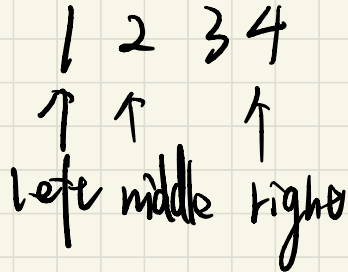 1 2 3 4
left middle right